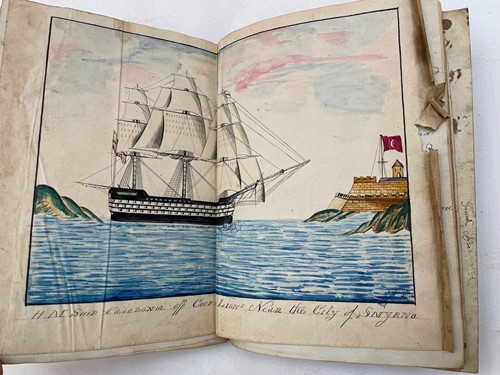 H.M. Ship Caledonia off Lions Near the City of Smyrna